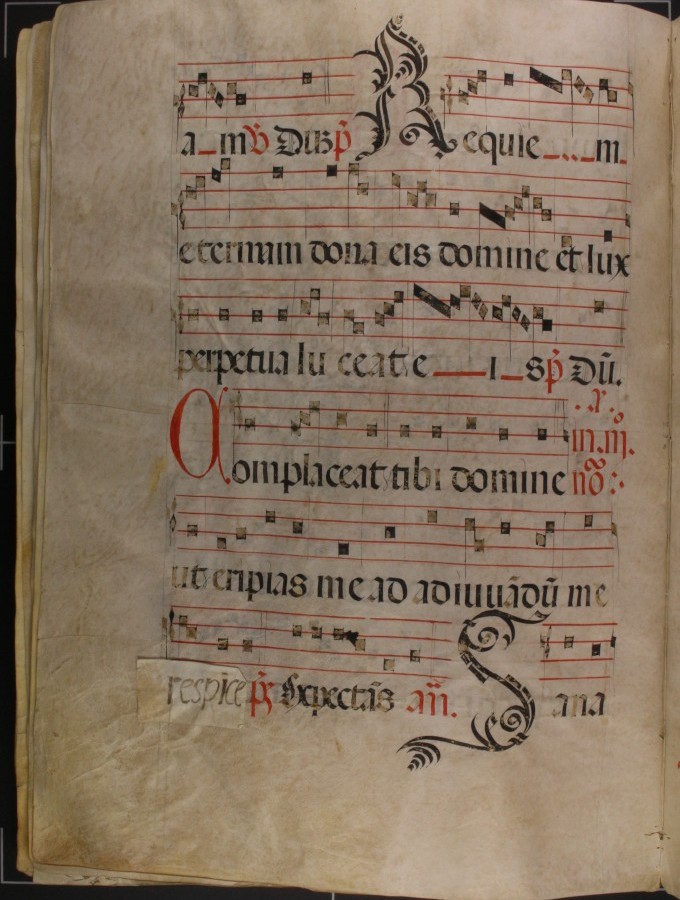 a_m Requie_m.
eternam dona eis domine et lux
perpetua lu ceat e_i_s p̃ Dũ.
Complaceat tibi domine in .iij. no᷉:
ut eripias me ad adiuuãdũ me
respice p̃s Expectãs añ. Sana